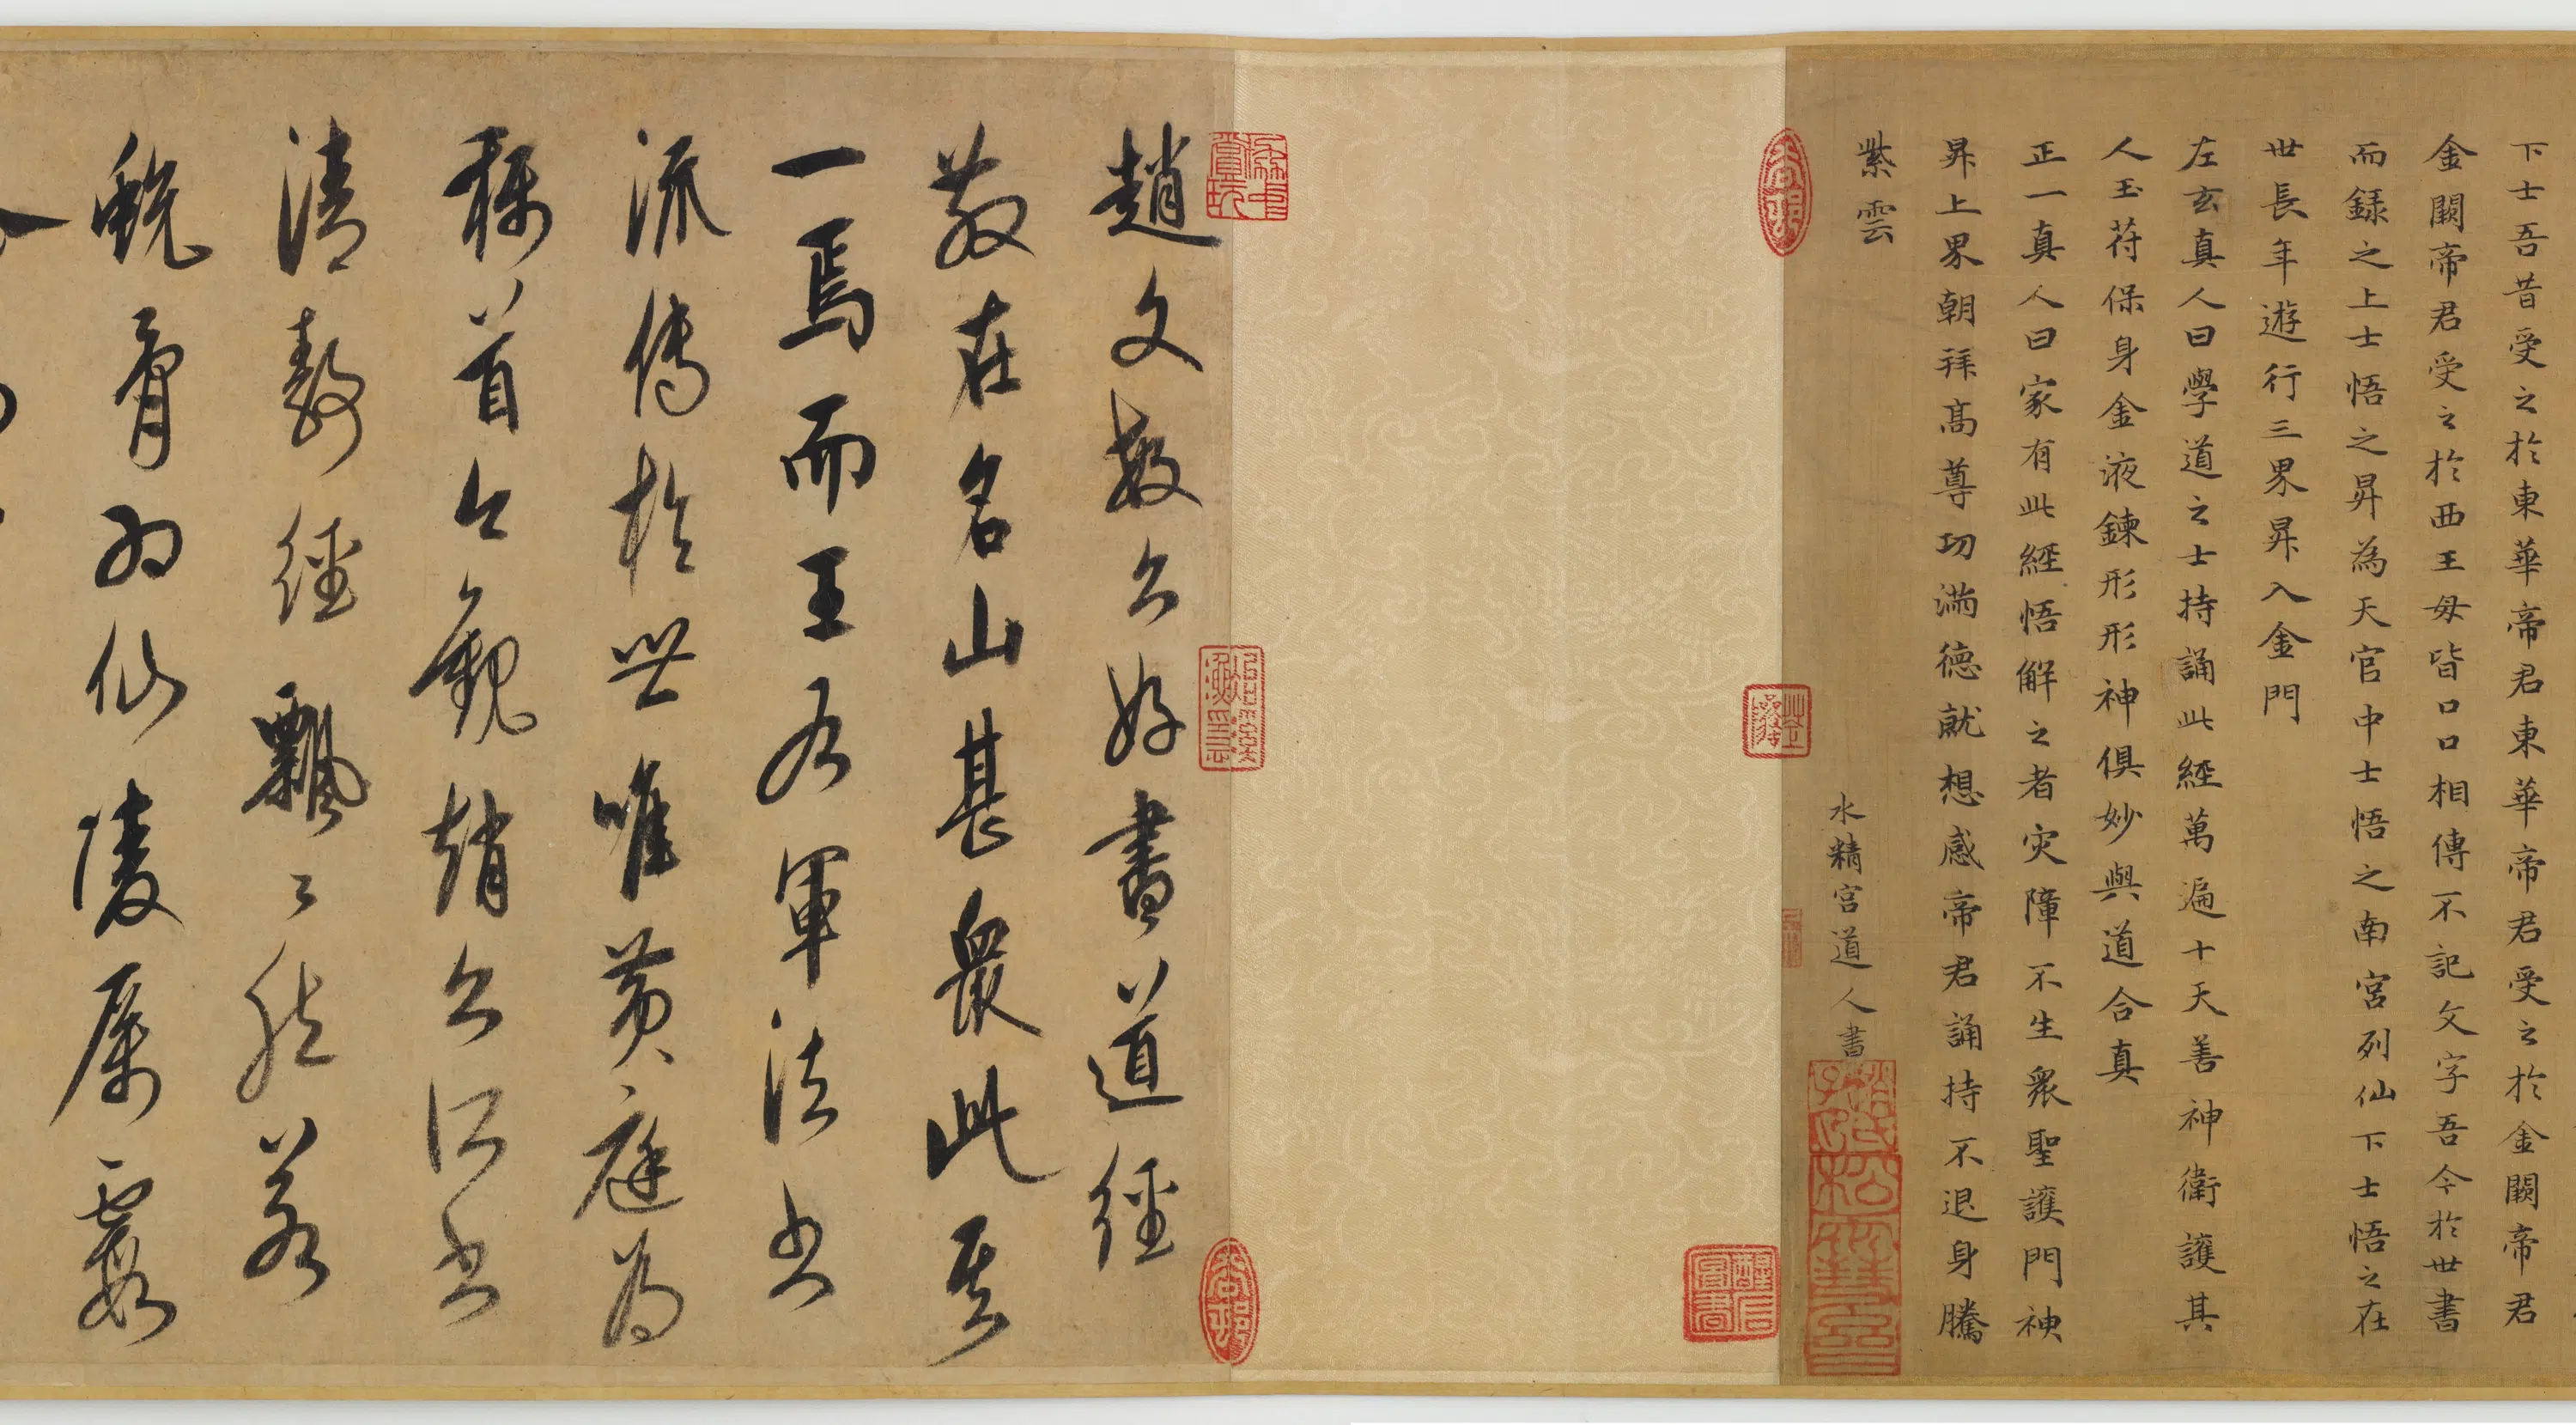 下士吾昔受之於東華帝君東華帝君受之於金闕帝君
金闕帝君受之於西王母皆口口相傳不記文字吾今於世書
而錄之上士悟之昇為天官中士悟之南宮列仙下士悟之在
世長年遊行三界昇入金門
左玄真人曰學道之士持誦此經萬遍十天善神衛護其
人玉符保身金液鍊形形神俱妙與道合真
正一真人曰家有此經悟解之者灾障不生衆聖護門神
昇上界朝拜高尊功滿德就想感帝君誦持不退身騰
紫雲
水精宮道人書
趙文敏公好書道經
散在名山甚衆此其
一焉而王右軍法書
流傳於世唯黃庭為
稱首今觀趙公所書
清靜經飄〻然若
蛻骨為仙陵厲霞